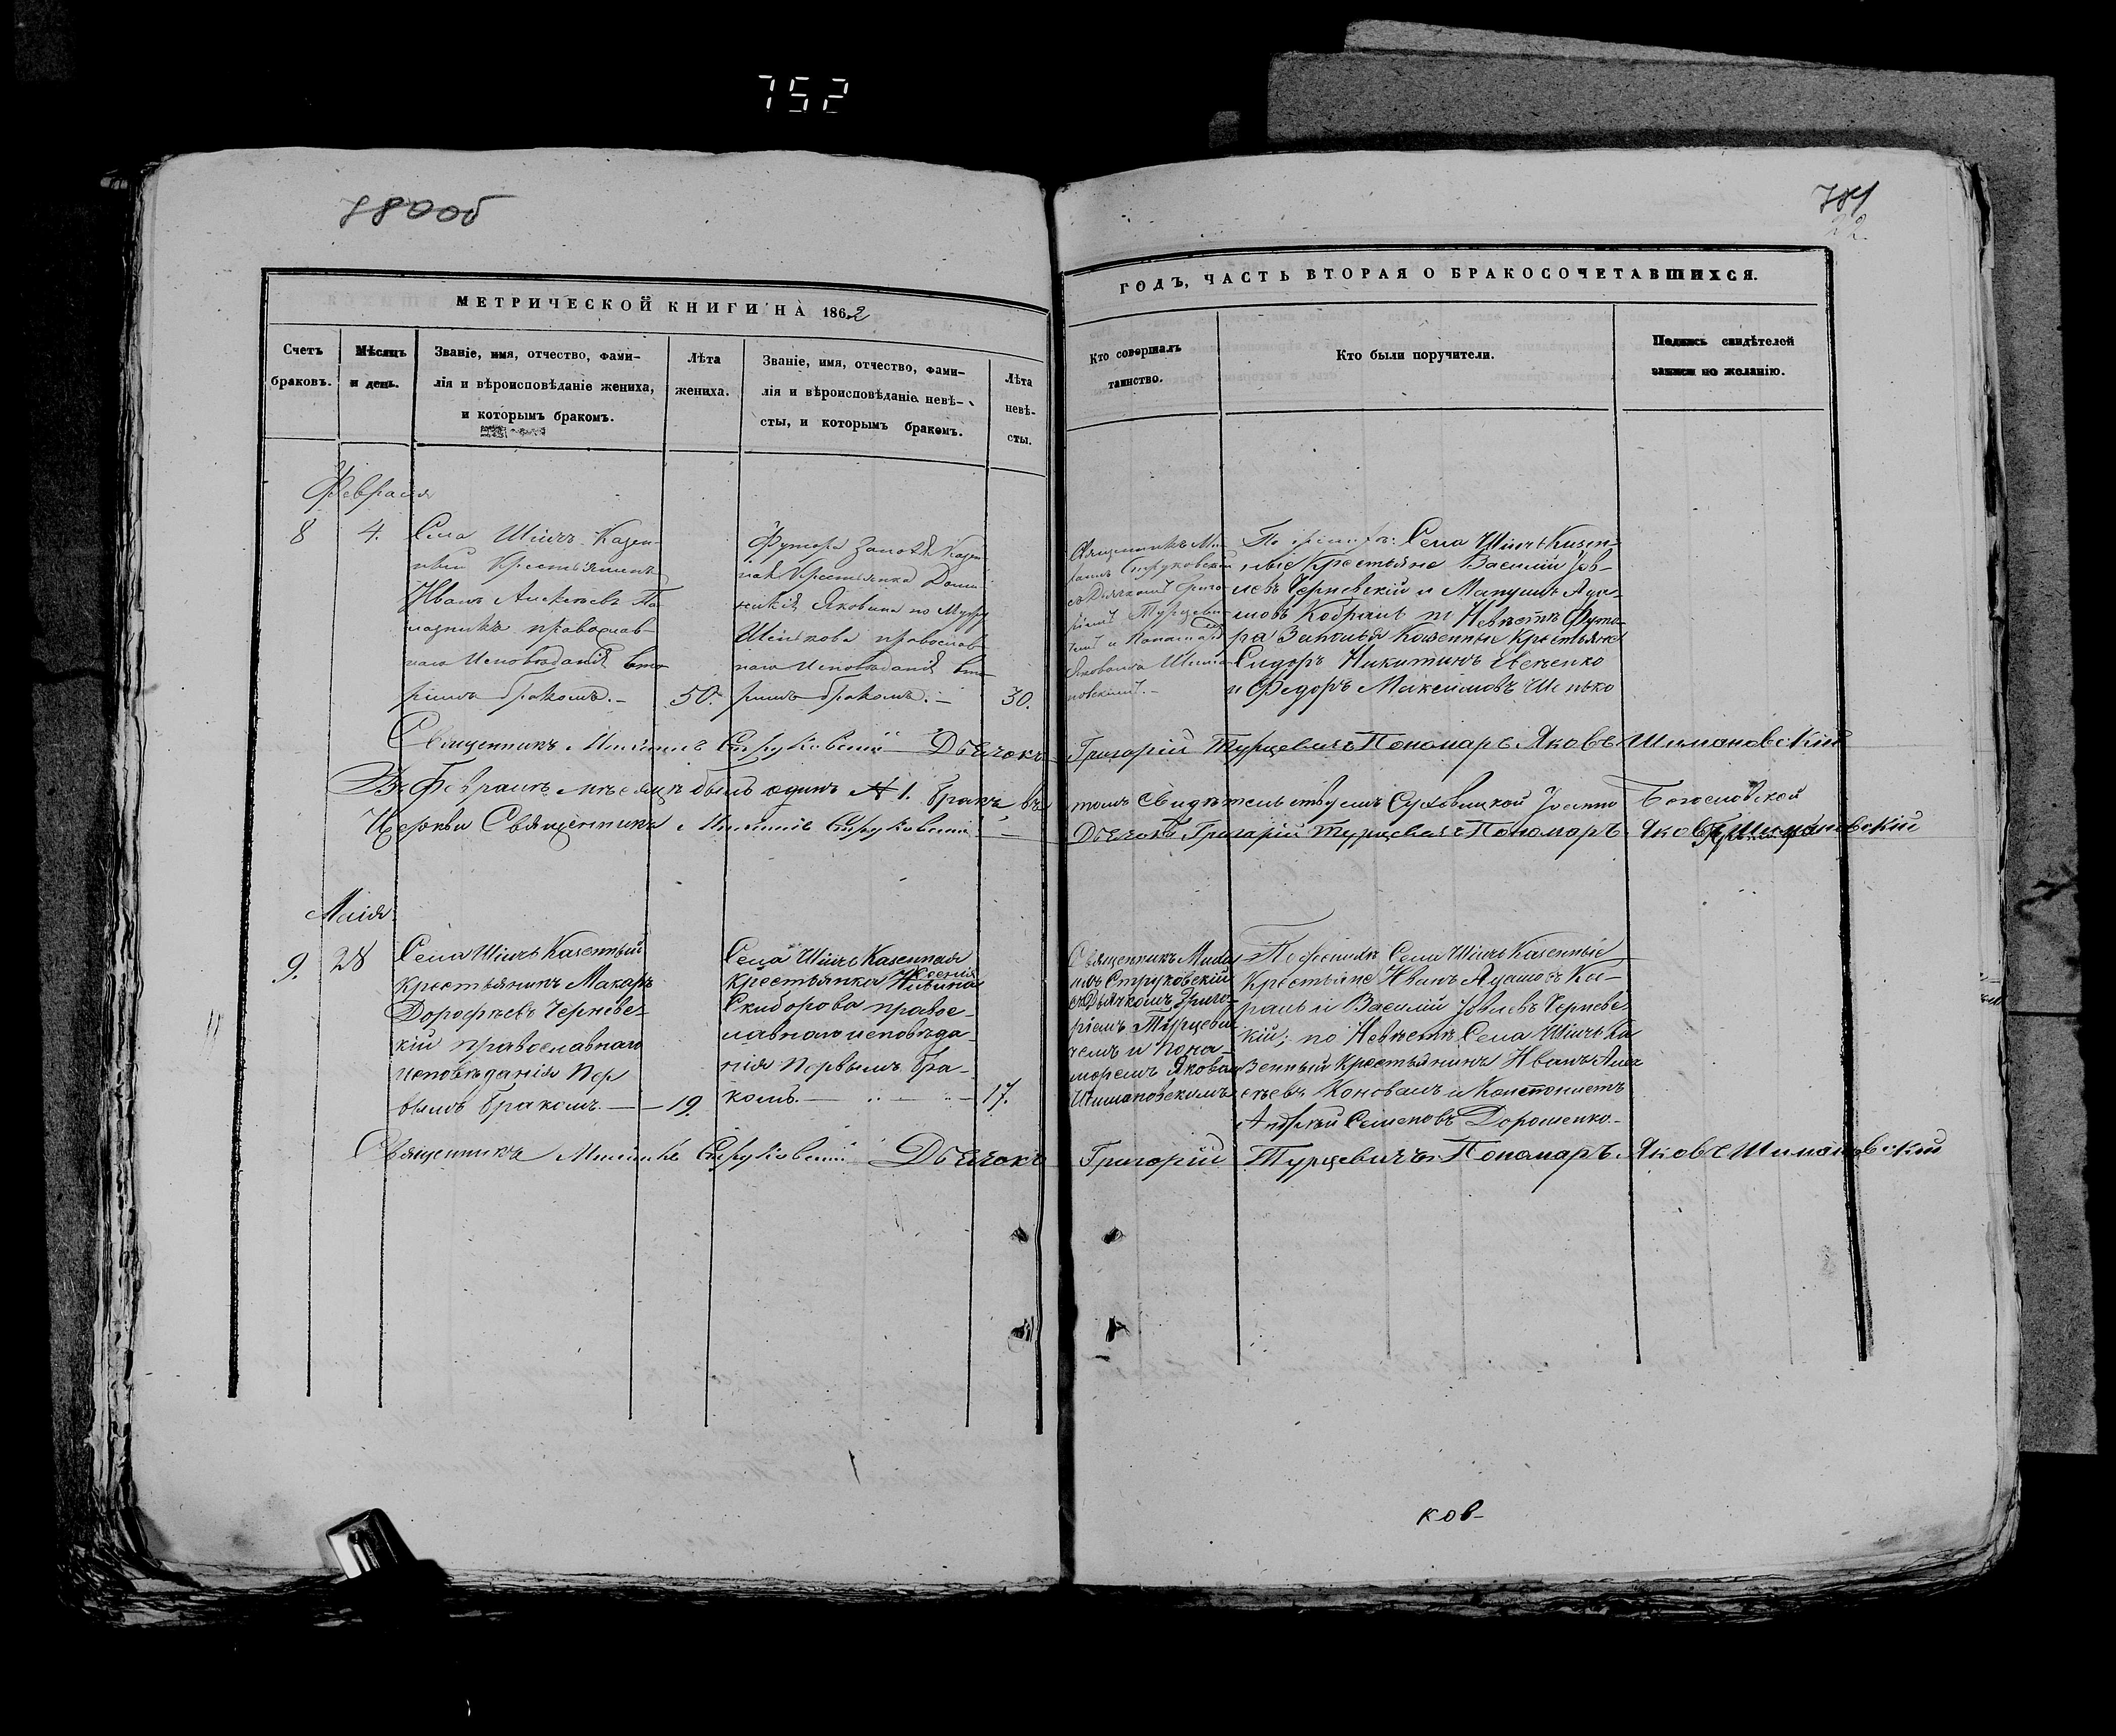 752
780об
781
22
МЕТРИЧЕСКОЙ КНИГИ НА 1862
ГОДЪ, ЧАСТЬ ВТОРАЯ О БРАКОСОЧЕТАВШИХСЯ.
Счетъ браковъ.
Мѣсяцъ и день.
Званіе, имя, отчество, фами-
лія и вѣроисповѣданіе жениха,
и которымъ бракомъ.
Лѣта
жениха.
Званіе, имя, отчество, фами-
лія и вѣроисповѣданіе невѣ-
сты, и которымъ бракомъ.
Лѣта
невѣ-
сты.
Кто совершалъ
таинство.
Кто были поручители.
Подпись свидѣтелей
записи по желанію.
Февраля
8
4.
Села Казен-
ный Крестьянинъ
Иванъ Алексѣевъ
православ-
наго Исповѣданія вто
рымъ бракомъ.-
50.
Футора Казен
ная Крестьянка
Яковина по Мужу
православ
наго Исповѣданія вто
рымъ бракомъ.-
30.
Священникъ Ми
хаилъ Струковскій
съ Дьячкомъ Григо
ріемъ Турцеви
чемъ и Понамаремъ
Яковомъ Шима
новскимъ.-
По женихѣ: Села Казен-
ные Крестьяне Василій Іов-
левъ Черневскій и Ада-
мовъ по Невѣстѣ Футо-
ра Казенные Крестьяне
Сидоръ Никитинъ
и Федоръ Максимовъ
Священникъ Михаилъ Струковскій Дьячокъ Григорій Турцевичъ Пономарь Яковъ Шимановскій
Въ Февралѣ мѣсяцѣ былъ одинъ № 1. бракъ въ томъ свидѣтельствуемъ Іоанно Богословской
Церкви Священникъ Михаилъ Струковскій Дьячокъ Григорій Турцевичъ Пономарь Яковъ Шимановскій
Маія
9.
28
Села Казенный
крестьянинъ Макаръ
Дорофѣевъ Черневс-
кій православнаго
исповѣданія пер
вымъ бракомъ.
19.
Села Казенная
крестьянка Ксенія
Скиборова правос-
лавнаго исповѣда-
нія первымъ бра-
комъ.
17.
Священникъ Миха
илъ Струковскій
съ Дьячкомъ Григо-
ріемъ Турцеви
чемъ и Пона-
моремъ Яковомъ
Шимановскимъ
По женихѣ Села Казенные
Крестьяне Иванъ Адамовъ
и Василій Іовлевъ Черневс-
кій; по Невѣстѣ Села Ка
зенный Крестьянинъ Иванъ Алек
сѣевъ Коновалъ и
Андрей Семеновъ Дорошенко.-
Священникъ Михаилъ Струковскій Дьячокъ Григорій Турцевичъ Пономарь Яковъ Шимановскій
ков-